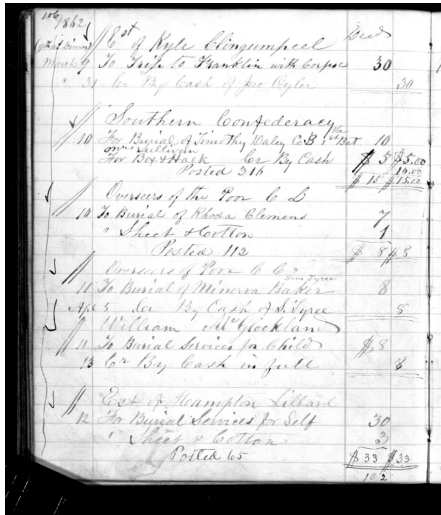 106
1862
Est of Kyle Clingumpeel
March 9 To Trip to Franklin with Corpse 30
" 31 Cr By Cash of Jno Tyler 30
Southern Confederacy
10 For Burial of Timothy Daley Co B 1st Va Bat 10
For Box & Hack Cr By Cash $5 $5.00
10.00
Posted 316 $15 $15.00
Overseers of the Poor C D
10 To Burial of Rhoda Clemens 7
" Sheet & Cotton 1
Posted 112 $8 $8
Overseers of Poor C Co
Sam Tyree
11 To Burial of Minerva Baker 8
Apl 5 Cr By Cash of S. Tyree 8
William McGlockland
11 To Burial Services for Child $8
13 Cr By Cash in full 8
Est of Hampton Lillard
12 For Burial Services for Self 30
" Sheet & Cotton 3
Posted 65 $33 $33
102